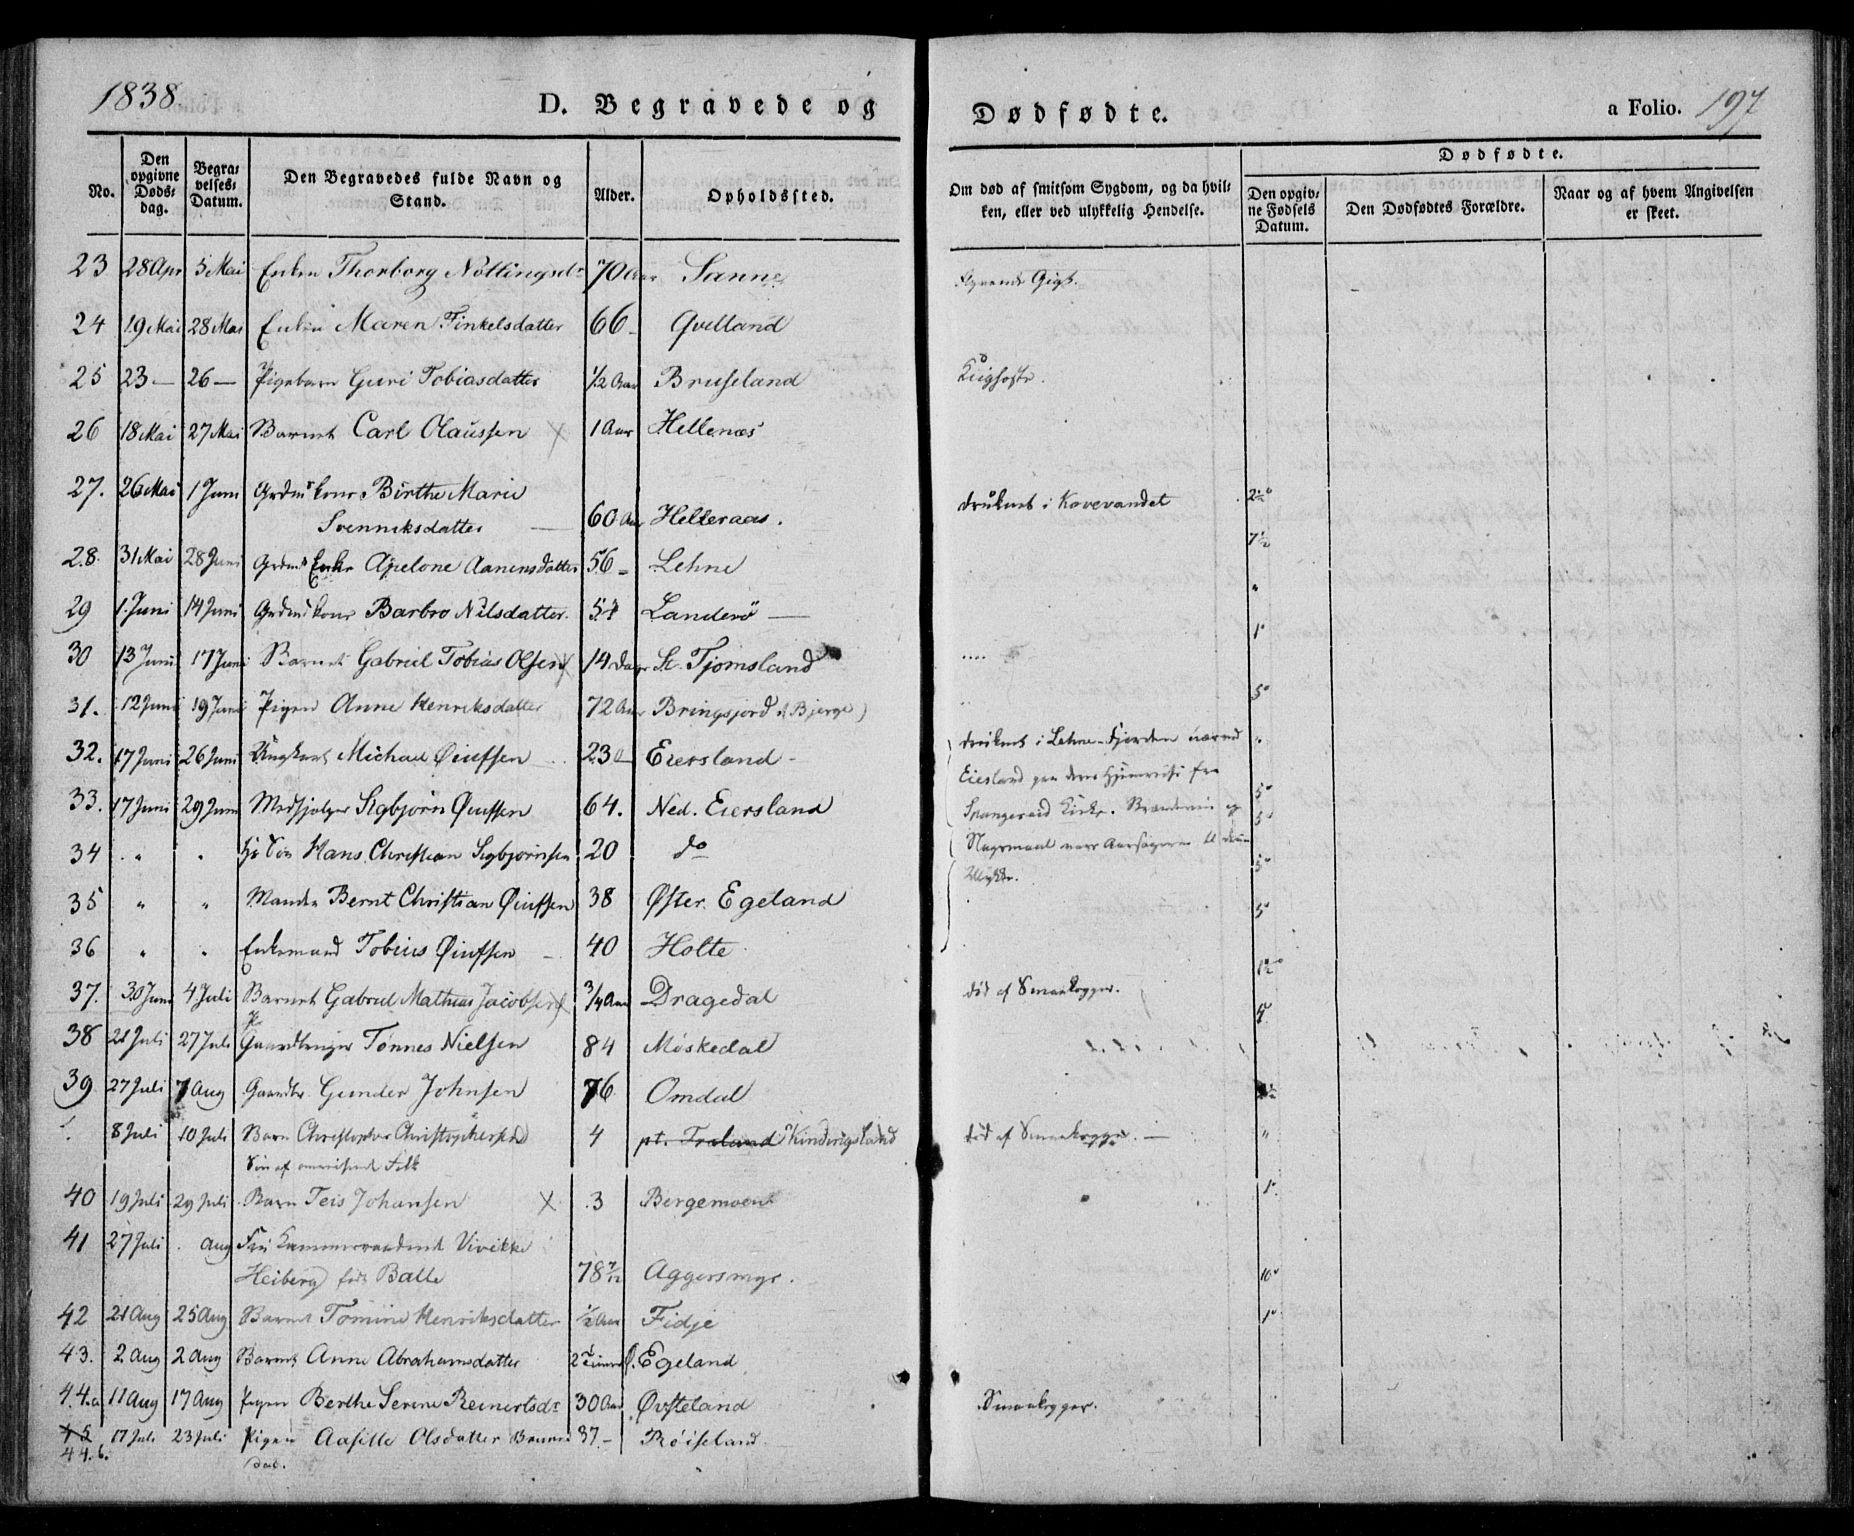 1838.
D. Begravede og
Dødfødte.
a Folio. 197
No.
Den opgivne Døds-dag.
Begra-velses-Datum.
Den Begravedes fulde Navn og Stand.
Alder.
Opholdssted.
Om død af smitsom Sygdom, og da hvil-ken, eller ved ulykkelig Hendelse.
Dødfødte.
Den opgiv-ne Fødsels Datum.
Den Dødfødtes Forældre.
Naar og af hvem Angivelsen er skeet.
23 28 Apr 5 Mai Enken Thorborg Nøttingsdr 70 Aar Sanne Gigt.
24 19 Mai 28 Mai Enken Maren Finkelsdatter 66 - Qvelland
25 23 — 26 — Pigebarn Guri Tobiasdatter 1/2 Aar Bruseland Kighoste.
26 18 Mai 27 Mai Barnet Carl Olaussen X 1 Aar Hellenæs
27. 26 Mai 1 Juni Grdms kone Birthe Marie
Svenniksdatter 60 Aar Helleraas. druknet i Kovevandet
28. 31 Mai 28 Juni Grdms Enke Apelone Aanensdatter 56 - Lehne
29 1 Juni 14 Juni Grdms kone Barbro Nilsdatter. 54 Landerö —
30 13 Juni 17 Juni Barnet Gabriel Tobias Olsen X 14 Dage St. Tjomsland
31. 12 Juni 19 Juni Pigen Anne Henriksdatter 72 Aar Bringsjord (Bjerge)
32. 17 Juni 26 Juni Ungkarl Michael Øiufsen 23 Eiersland - druknet i Lehne-Fjorden nærved
Eiesland paa deres Hjemreise fra
33. 17 Juni 29 Juni Medhjelper Sigbjørn Øiufsen 64. Ned. Eiersland Spangereid Kirke. Brændeviin og
34 " " Hs Søn Hans Christian Sigbjørnsen 20 do Aarsagerne til denne
Ulykke.
35 " " Manden Bernt Christian Øiufsen 38 Øster. Egeland
36 " " Enkemand Tobias Øiufsen - 40 Holte
37. 30 Juni 4 Juli Barnet Gabriel Mathias Jacobsen X 3/4 Aar Dragedal død af Smaakopper.
38 21 Juli 27 Juli Gaardbruger Tønnes Nielsen 84 Møskedal
39. 27 Juli 7 Aug Gaardbr. Gunder Johnsen 76 Omdal
8 Juli 10 Juli Barn Christopher Christophersen 4 pt. Fraland Kindrigsland død af Smaakopper. —
Søn af omreisende Folk
40 19 Juli 29 Juli Barn Teis Johansen X 3 Bergemoen
41 27 Juli . Aug Fru Kammerraadinde Vivikke
Heiberg født Balle 78 7/12 Aggersmyr.
42 21 Aug 25 Aug Barnet Tomine Henriksdatter 1/2 Aar Fidje
43. 2 Aug 2 Aug Barnet Anne Abrahamsdatter 2 Timer Ø. Egeland
44.a 11 Aug 17 Aug Pigen Berthe Serine Reinertsdr 30 Aar Øvsteland Smaakopper.
45
44.b. 17 Juli 23 Juli Pigen Aasille Olsdatter 37 - Røiseland.